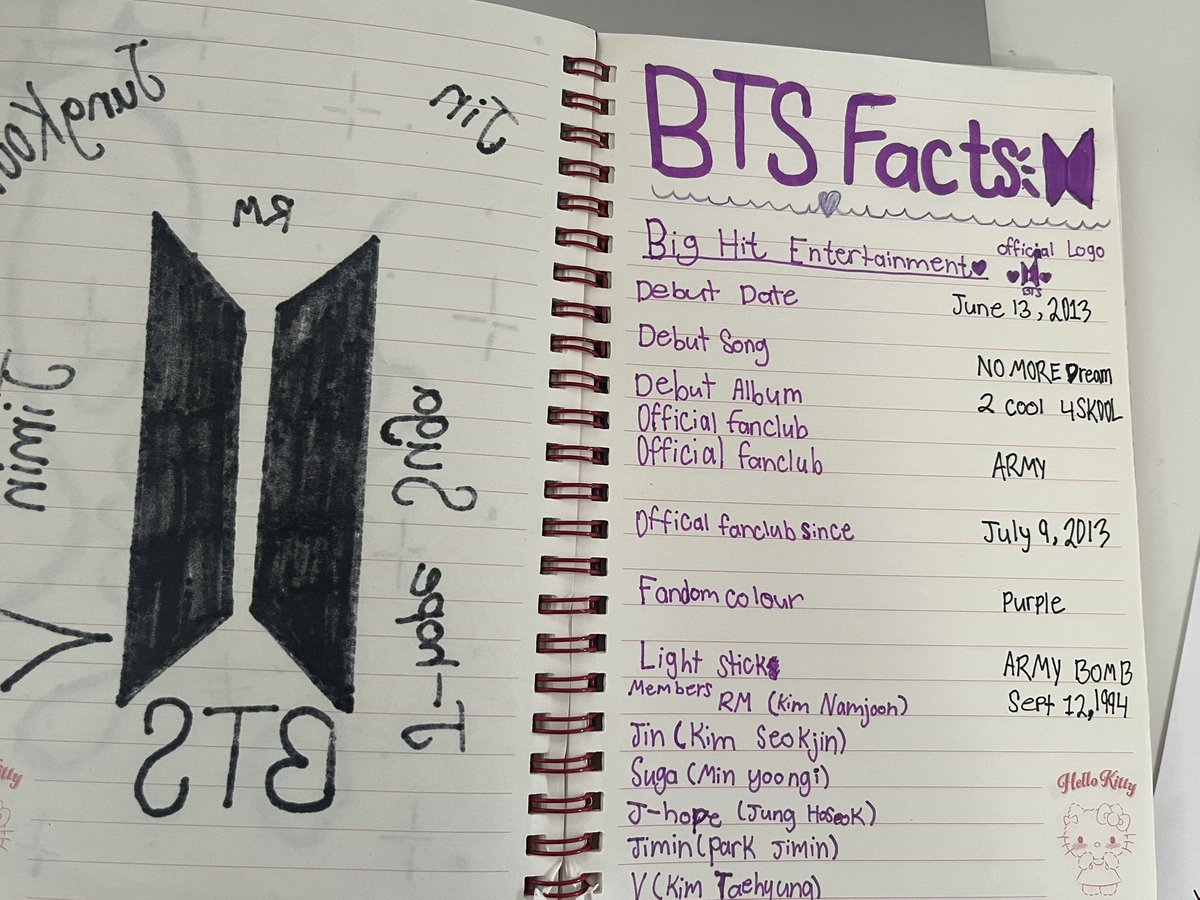 JungKoo
Jin
RM
Jimin
Suga
J-hope
V
BTS
BTS Facts
Big Hit Entertainment
official Logo
BTS
Debut Date June 13, 2013
Debut Song NO MORE Dream
Debut Album 2 cool 4SKOOL
Official fanclub
Official fanclub ARMY
Offical fanclub since July 9, 2013
Fandom colour Purple
Light stick ARMY BOMB
Members RM (Kim Namjoon) Sept 12, 1994
Jin (Kim Seokjin)
Suga (Min yoongi)
J-hope (Jung HoSeok)
Jimin (park Jimin)
V (Kim Taehyung)
Hello Kitty